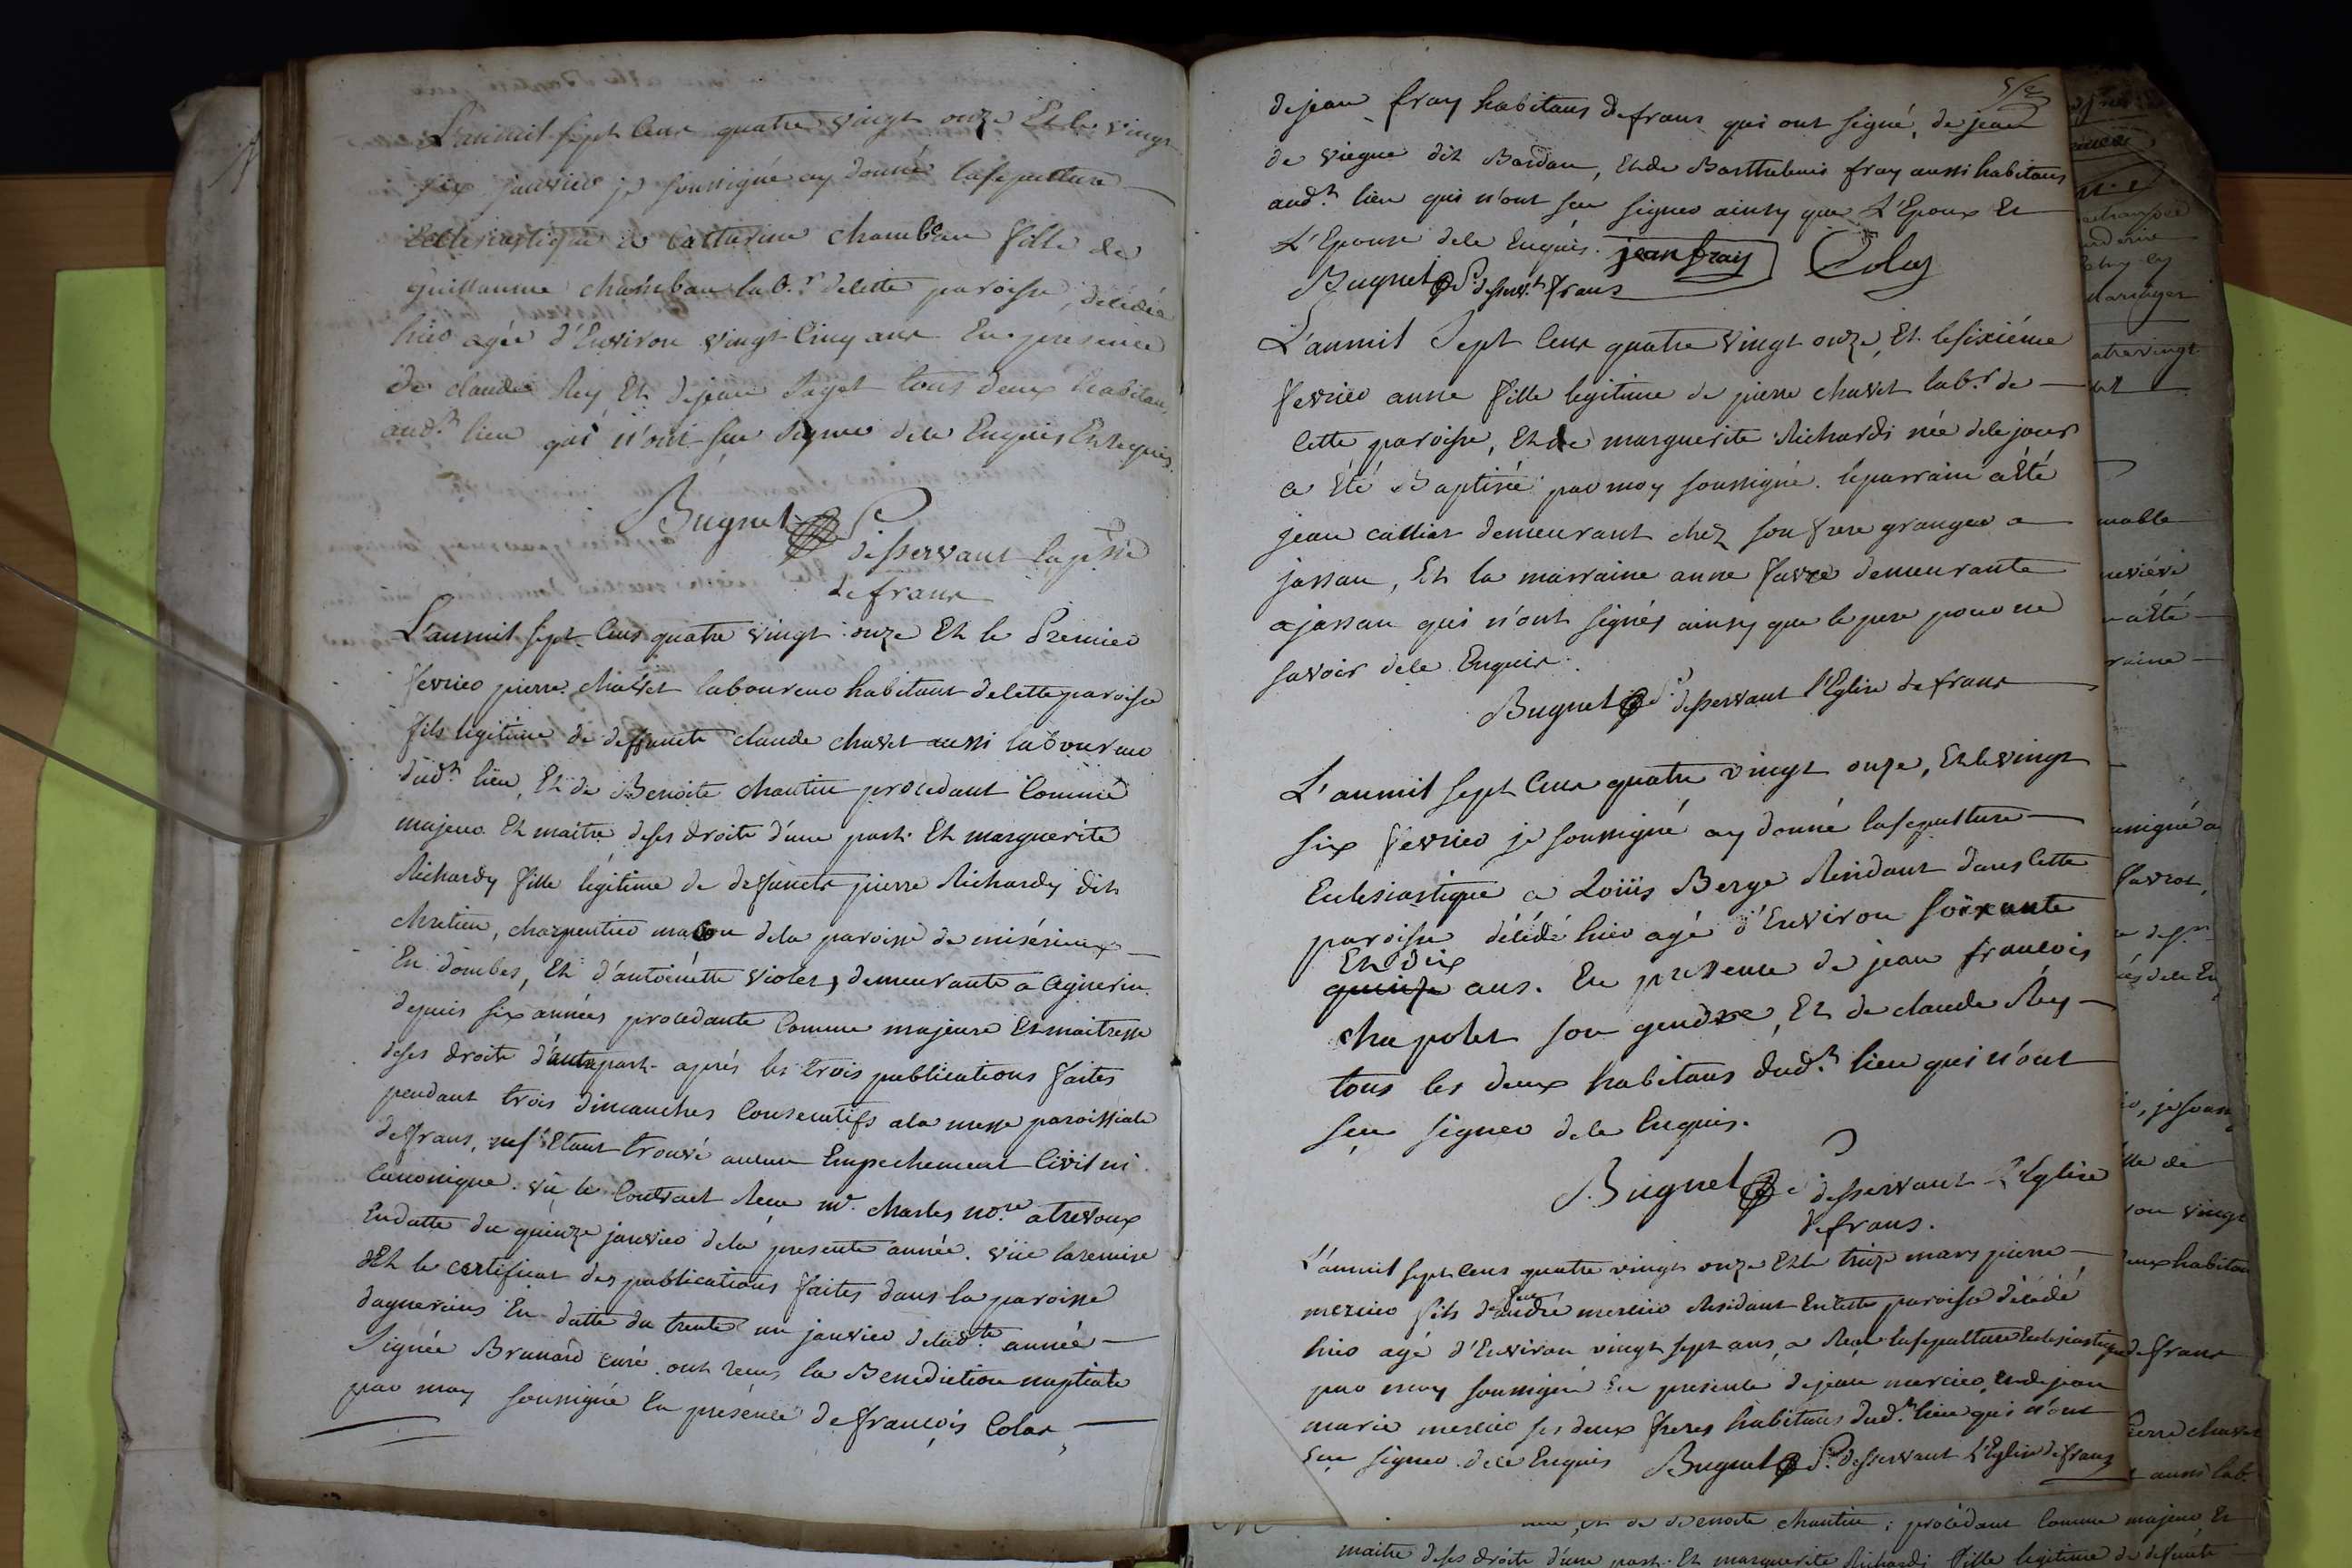 L'anmil sept Cens quatre vingt onze Et le vingt
six janvier je soussigné ay donné la sepulture
Ecclesiastique a Catherine chambeau fille de
guillaume chambau lab.r de cette paroisse, décédée
hier agée d'Environ vingt Cinq ans En presence
de claude Rey Et de jean Paget tous deux habitans
aud.t lieu qui n'ont sçu signer de ce Enquis Et requis
Bugnet P.
desservant la p.sse
de frans
L'anmil sept Cens quatre vingt onze Et le Premier
fevrier pierre chavet laboureur habitant de cette paroisse
fils legitime de deffunct claude chavet aussi laboureur
dud.t lieu, Et de Benoite chantin procedant Comme
majeur Et maitre de ses droits d'une part. Et marguerite
Richardy fille légitime de deffunct pierre Richardy dit
chretien, charpentier maçon de la paroisse de misérieux
En dombes, Et d'antoinette violet, demeurante a agnerin
depuis six années procedante Comme majeure Et maitresse
de ses droits d'autre part. aprés les trois publications faites
pendant trois dimanches Consecutifs a la messe paroissiale
de frans, ne s'Etant trouvé aucun Empechement Civil ni
Canonique. vu le Contract Reçu m.e charles no.re a trevoux
En datte du quinze janvier de la presente année. vüe la remise
Et le certificat des publications faites dans la paroisse
d'agnereins En datte du trente un janvier de lad.te année
Signée Brunard curé. ont reçu la Benediction nuptiale
par moy soussigné En présence de françois Colas
52
de jean fray habitans de frans qui ont signé, de jean
de viegne dit Bardan, Et de Barthelemi fray aussi habitans
aud.t lieu qui n'ont sçu signer ainsy que L'Epoux Et
L'Epouse de ce Enquis. jean fray Colas
Bugnet P. desserv.t frans
L'anmil Sept Cens quatre vingt onze, Et le sixiéme
fevrier anne fille legitime de pierre chavet lab.r de
Cette paroisse, Et de marguerite Richardi née de ce jour
a Eté Baptisée par moy soussigné. le parrain a Eté
jean callier demeurant chez son frere granger a
jassan, Et la marraine anne favre demeurante
a jassan qui n'ont signés ainsy que le pere pour ne
savoir de ce Enquis.
Bugnet P. desservant l'Eglise de frans
L'anmil sept Cens quatre vingt onze, Et le vingt
six fevrier je soussigné ay donné la sepulture
Eclesiastique a Loüis Berge Residant dans Cette
paroisse décédé hier agé d'Environ soixante
Et dix
quinze ans. En presence de jean francois
chapolet son gendre, Et de claude Rey
tous les deux habitans dud.t lieu qui n'ont
sçu signer de ce Enquis.
Bugnet P. desservant L'Eglise
de frans.
L'anmil sept Cens quatre vingt onze Et le treize mars pierre
mercier fils de feu andré mercier Residant En Cette paroisse décédé
hier agé d'Environ vingt sept ans, a Reçu la sepulture Eclesiastique
par moy soussigné En presence de jean mercier, Et de jean
marie mercier ses deux freres habitans dud.t lieu qui n'ont
sçu signer. de ce Enquis Bugnet P. desservant L'Eglise de frans
Et de Benoite chantin; procédant Comme majeur Et
maitre de ses droits d'une part. Et marguerite Richardi fille legitime de defunct